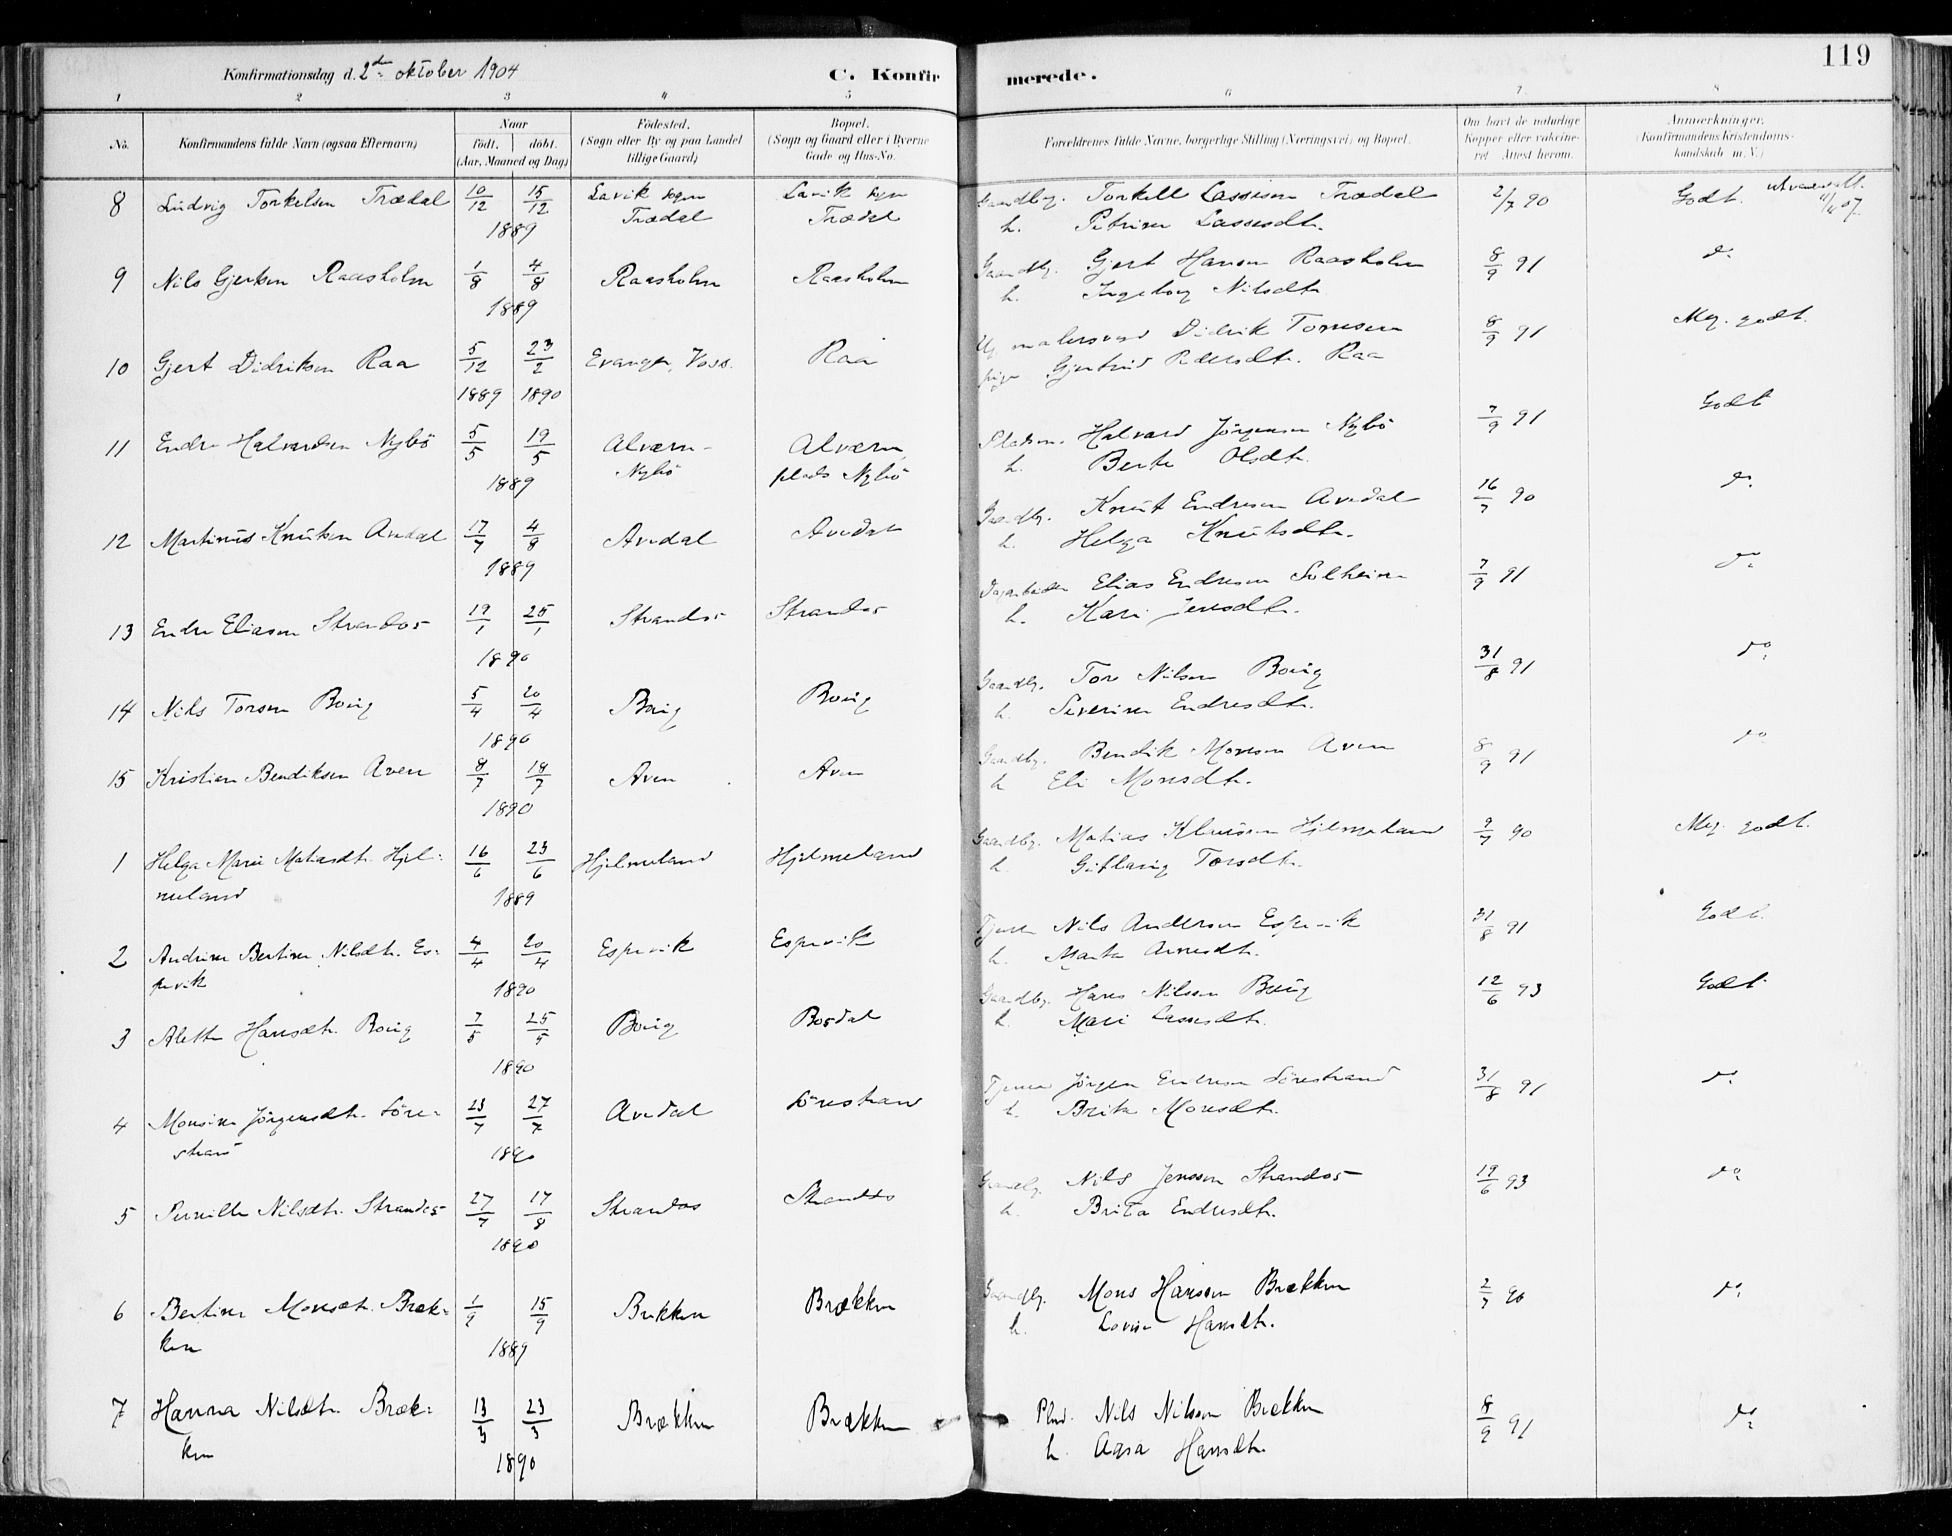 119
Konfirmationsdag d. 2den oktober 1904
C. Konfirmerede.
1 2 3 4 5 6 7 8
No.
Konfirmandens fulde Navn (ogsaa Efternavn)
Naar
født. døbt.
(Aar, Maaned og Dag)
Fødested.
(Sogn eller By og paa Landet
tillige Gaard)
Bopæl.
(Sogn og Gaard eller i Byerne
Gade og Hus-No.
Forældrenes fulde Navne, borgerlige Stilling (Næringsvei) og Bopæl.
Om havt de naturlige
Kopper eller vakcine-
ret Attest herom.
Anmærkninger.
(Konfirmandens Kristendoms-
kundskab m. V.)
8 Ludvig Torkelsen Trædal 10/12 15/12 Lavik sogn Lavik sogn Gaardbg. Torkell Lassesen Trædal 2/7 90 Godt.
1889 Trædal Trædal h. Petrine Lassesdtr.
9 Nils Gjertsen Raasholm 1/8 4/8 Raasholm Raasholm Gaardbg. Gjert Hansen Raasholm 8/9 91 do
1889 h. Ingeborg Nilsdtr.
10 Gjert Didriksen Raa 5/12 23/2 Evanger, Voss. Raa Didrik Tomesen 8/9 91 Meg. godt.
1889 1890 pige Gjertrud Pedersdtr. Raa
11 Endre Halvardsen Nybö 5/5 19/5 Alværn- Alværn, Pladsm. Halvard Jörgensen Nybö 7/9 91 Godt
1889 Nybö plads Nybö h. Berte Olsdtr.
12 Martinus Knutsen Avedal 17/7 4/8 Avedal Avedal Gaardbg. Knut Endresen Avedal 16/7 90 do
1889 h. Helga Knutsdtr.
13 Endre Eliasen Strandos 19/1 25/1 Strandos Strandos Dagarbeider Elias Endresen Solheim 7/9 91 do
1890 h. Kari Jensdtr.
14 Nils Torsen Boug 5/4 20/4 Boug Boug Gaardbg. Tore Nilsen Boug 31/8 91 do
1890 h. Severine Endresdtr.
15 Kristian Bendiksen Aven 8/7 18/7 Aven Aven Gaardbg. Bendik Monsen Aven 8/9 91 do
1890 h Eli Monsdtr.
1 Helga Marie Matiasdtr. Hjel- 16/6 23/6 Hjelmeland Hjelmeland Gaardbg. Matias Hjelmeland 9/7 90 Meg. godt.
meland 1889 h. Gitlaug Torsdtr.
2 Andrine Bertine Nilsdtr. Es- 4/4 20/4 Espevik Espevik Nils Andersen Espevik 31/8 91 Godt.
pevik 1890 h. Marta Arnesdtr.
3 Alette Hansdtr. Boug 7/5 25/5 Boug Bosdal Gaardbg. Hans Nilsen Boug 12/6 93 Godt
1890 h. Mari Lassesdtr.
4 Monsine Jörgensdtr. Söre- 23/7 27/7 Avedal Sörestrand Tjener Jörgen Endresen Sörestrand 31/8 91 do
strand 1890 h. Brita Monsdtr.
5 Pernille Nilsdtr. Strandos 27/7 17/8 Strandos Strandos Gaardbg. Nils Jensen Strandos 19/6 93 do
1890 h. Brita Endresdtr.
6 Bertine Monsdtr. Bræk- 1/9 15/9 Brækken Brækken Gaardbg. Mons Hansen Brækken 2/7 90 do
ken 1889 h. Lovise Hansdtr.
7 Hanna Nilsdtr. Bræk- 13/3 23/3 Brækken Brækken Plad. Nils Nilsen Brækken 8/9 91 do
ken 1890 h. Aasa Hansdtr.